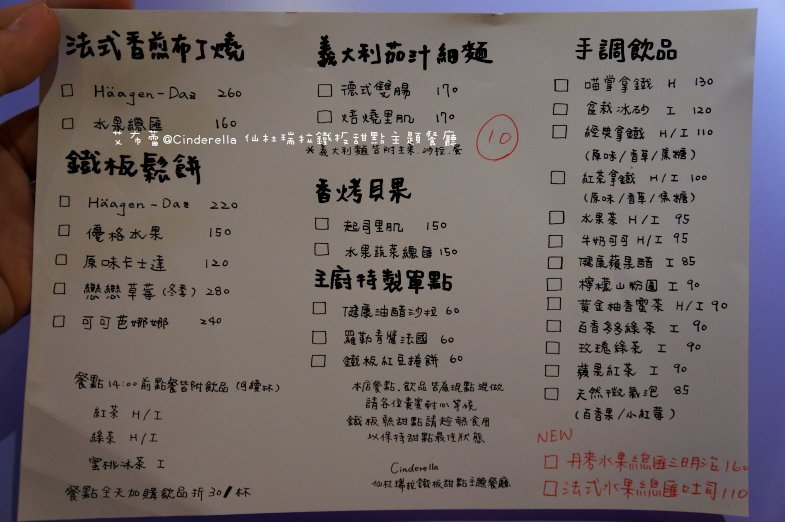 法式香煎布丁燒
□ Häagen-Daz 260
□ 水果總匯 160
鐵板鬆餅
□ Häagen-Daz 220
□ 優格水果 150
□ 原味卡士達 120
□ 戀戀草莓(冬季) 280
□ 可可芭娜娜 240
餐點14:00前點餐皆附飲品(可續杯)
紅茶 H/I
綠茶 H/I
蜜桃冰茶 I
餐點全天加購飲品折30/杯
義大利茄汁細麵
□ 德式雙腸 170
□ 烤燒里肌 170
*義大利麵皆附主菜.沙拉.蛋
10
艾布魯@Cinderella 仙杜瑞拉鐵板甜點主題餐廳
香烤貝果
□ 起司里肌 150
□ 水果蔬菜總匯 150
主廚特製單點
□ 健康油醋沙拉 60
□ 羅勒青醬法國 60
□ 鐵板紅豆捲餅 60
本店餐點.飲品皆為現點現做
請各位貴賓耐心等候
鐵板熱甜點請趁熱食用
以保持甜點最佳狀態
Cinderella
仙杜瑞拉鐵板甜點主題餐廳
手調飲品
□ 喵掌拿鐵 H 130
□ 盆栽冰砂 I 120
□ 經典拿鐵 H/I 110
(原味/香草/焦糖)
□ 紅茶拿鐵 H/I 100
(原味/香草/焦糖)
□ 水果茶 H/I 95
□ 牛奶可可 H/I 95
□ 健康蘋果醋 I 85
□ 檸檬山粉圓 I 90
□ 黃金柚香蜜茶 H/I 90
□ 百香多多綠茶 I 90
□ 玫瑰綠茶 I 90
□ 蘋果紅茶 I 90
□ 天然微氣泡 85
(百香果/小紅莓)
NEW
□ 丹麥水果總匯三明治 160
□ 法式水果總匯吐司 110